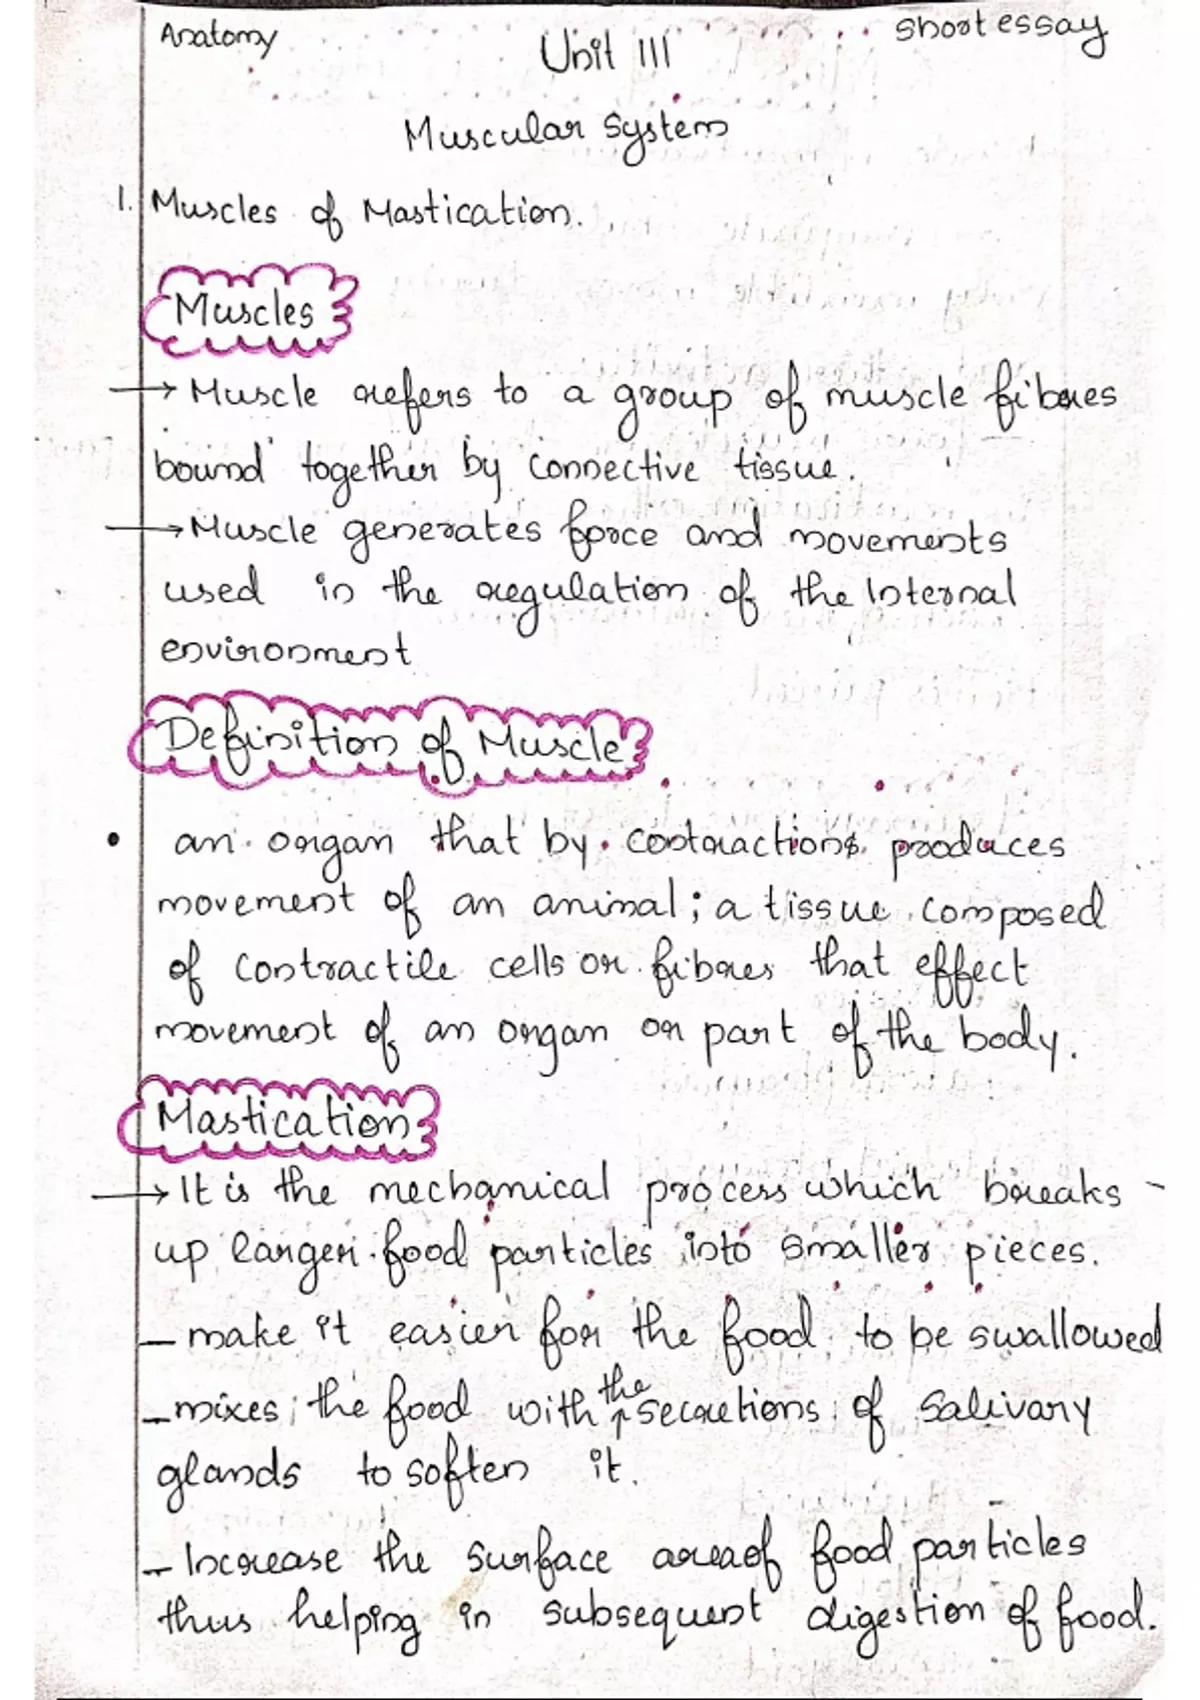 Anatomy
short essay
Unit III
Muscular System
1. Muscles of Mastication.
Muscles
→ Muscle refers to a group of muscle fibres
bound together by connective tissue.
→ Muscle generates force and movements
used in the regulation of the Internal
environment
Definition of Muscle
• an organ that by contractions produces
movement of an animal; a tissue composed
of contractile cells or fibres that effect
movement of an organ or part of the body.
Mastication
→ It is the mechanical process which breaks -
up larger food particles into smaller pieces.
- make it easier for the food to be swallowed
- mixes the food with the secretions of salivary
glands to soften it.
- Increase the surface area of food particles
thus helping in subsequent digestion of food.